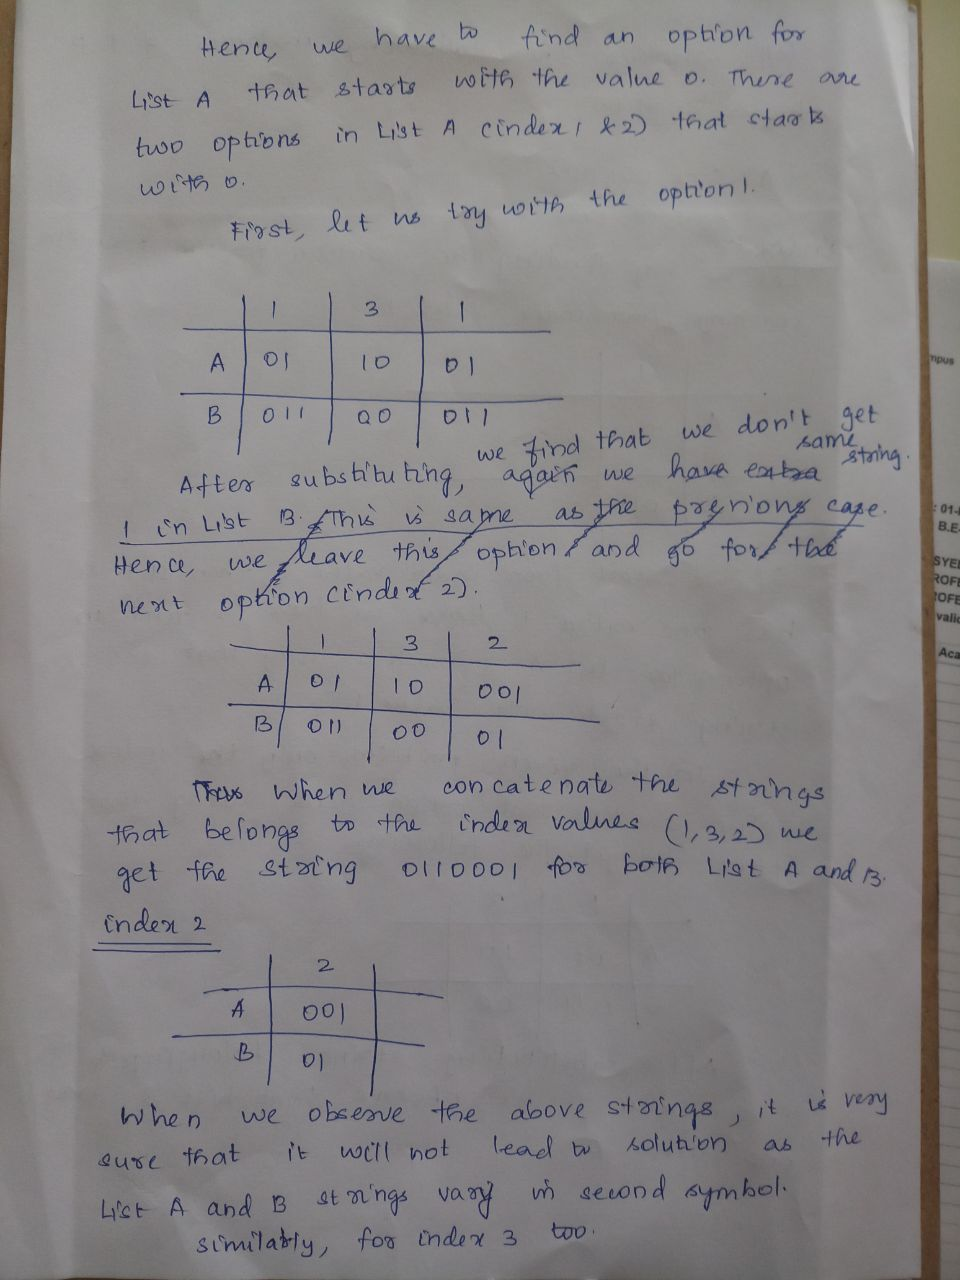 Hence, we have to find an option for
List A that starts with the value 0. There are
two options in List A (index 1 & 2) that starts
with 0.
First, let us try with the option 1.
1 3 1
A 01 10 01
B 011 00 011
we find that we don't get
same string.
After substituting, again we have extra
1 in List B. This is same as the previous case.
Hence, we leave this option and go for the
next option (index 2).
1 3 2
A 01 10 001
B 011 00 01
Thus when we concatenate the strings
that belongs to the index values (1,3,2) we
get the string 0110001 for both List A and B.
index 2
2
A 001
B 01
When we observe the above strings, it is very
sure that it will not lead to solution as the
List A and B strings vary in second symbol.
similarly, for index 3 too.
mpus
: 01-
B.E.
SYED
ROFE
ROFE
valid
Aca